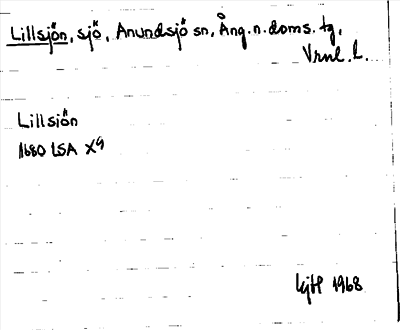 Lillsjön, sjö, Anundsjö sn, Ång. n. doms. tg,
Vrnl. L.
Lillsjön
1680 LSA X9
1968